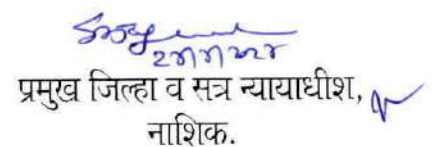 प्रमुख जिल्हा व सत्र न्यायाधीश,
नाशिक.